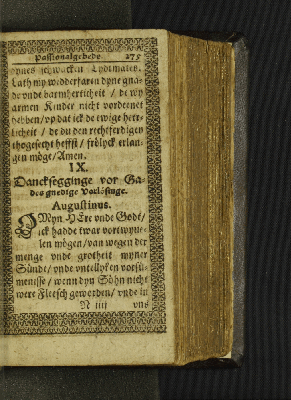 Passionalgebede. 275
dynes schwacken Lydtmates.
Lath my wedderfaren dyne gna-
de vnde barmherticheit / de wy
armen Kinder nicht vordenet
hebben / vp dat ick de ewige herr-
licheit / de du den rechtferdigen
thogesecht heffst / frölyck erlan-
gen möge / Amen.
IX.
Dancksegginge vor Ga-
des gnedige Vorlösinge.
Augustinus.
O Myn HEre vnde Godt /
ick hadde twar vortwyue-
len mögen / van wegen der
menge vnde grotheit myner
Sünde / vnde vntellyken vorsü-
menisse / wenn dyn Söhn nicht
were Fleesch geworden / vnde in
N iiij vns